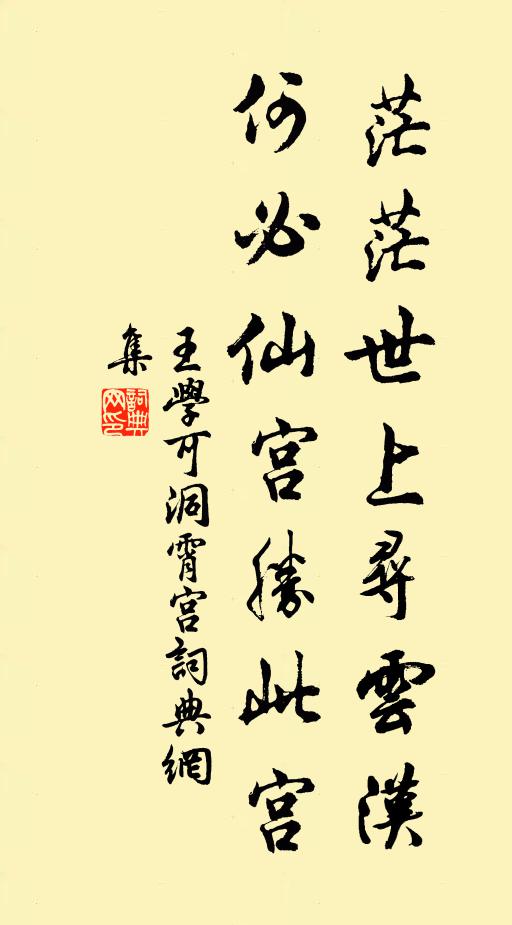 茫茫世上尋雲漢
何必仙宮勝此宮
王學可洞霄宮詞典網
集
詞典
网印